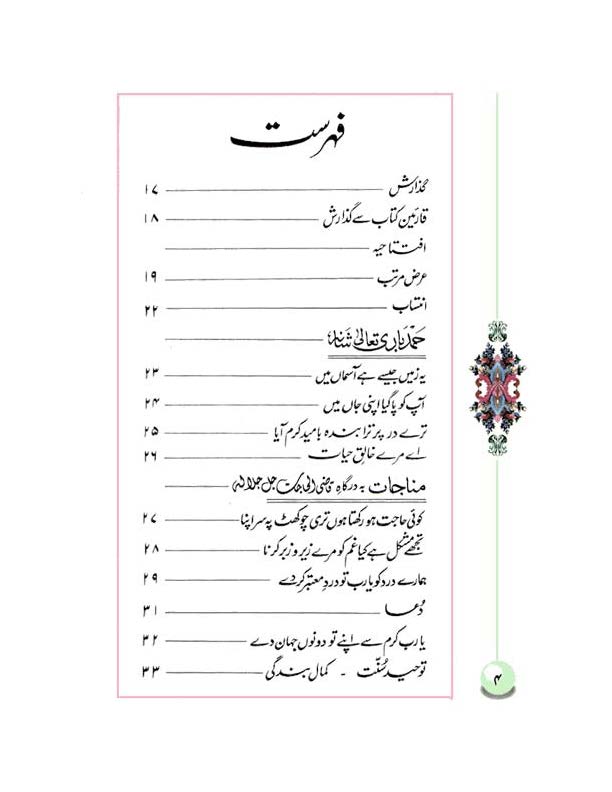 فہرست
گذارش ۱۷
قارئین کتاب سے گذارش ۱۸
افتتاحیہ
عرض مرتب ۱۹
انتساب ۲۲
حمد باری تعالیٰ شانہ
یہ زمیں جیسے ہے آسماں میں ۲۳
آپ کو پا گیا اپنی جاں میں ۲۴
ترے در پر ترا بندہ بامید کرم آیا ۲۵
اے مرے خالق حیات ۲۶
مناجات بہ درگاہِ قاضی الحاجات جل جلالہ
کوئی حاجت ہو رکھتا ہوں تری چوکھٹ پہ سر اپنا ۲۷
تجھے مشکل ہے کیا غم کو مرے زیر و زبر کرنا ۲۸
ہمارے درد کو یارب تو دردِ معتبر کر دے ۲۹
دُعا ۳۱
یارب کرم سے اپنے تو دونوں جہان دے ۳۲
توحید سُنّت - کمال بندگی ۳۳
۴